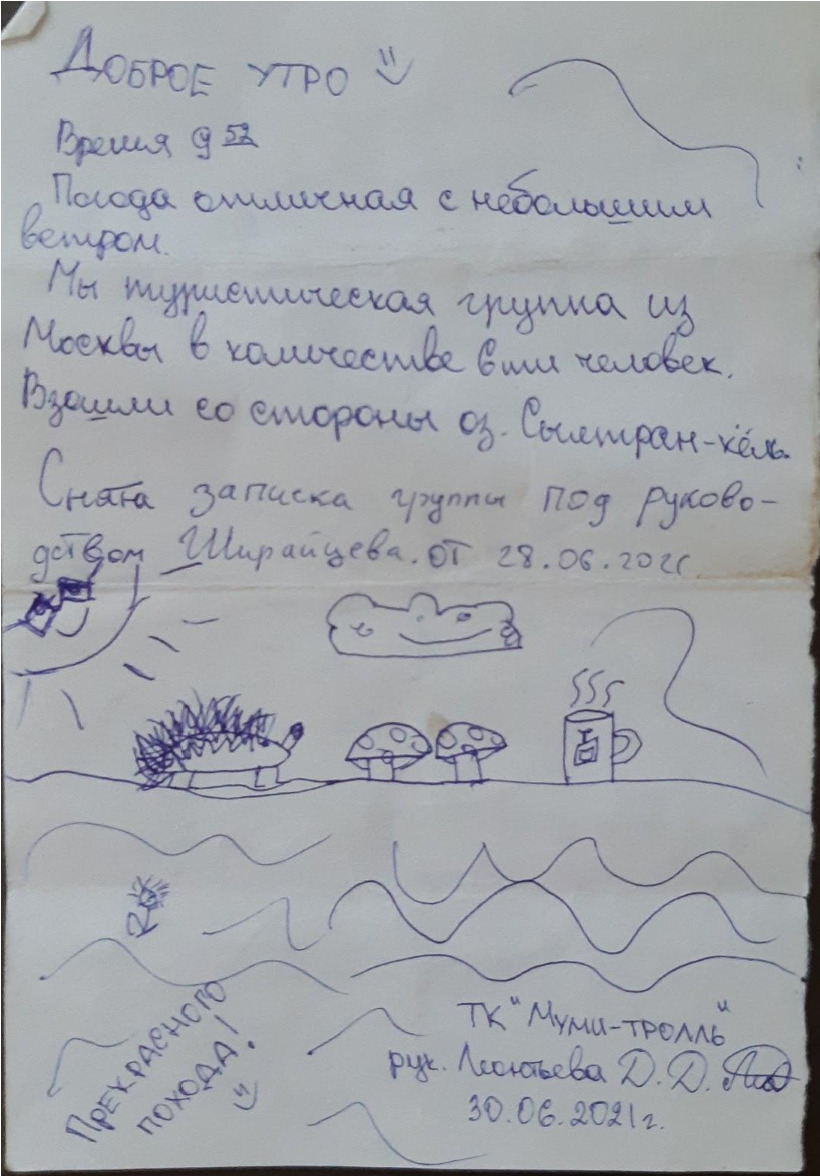 Доброе утро
Время 9 52
Погода отличная с небольшим
ветром.
Мы туристическая группа из
Москвы в количестве 6ти человек.
Взошли со стороны оз. Сылтран-кёль.
Снята записка группы под руково-
дством Ширайцева. от 28.06.2021
Прекрасного
похода!
ТК "Муми-тролль"
рук. Леонтьева Д.Д.
30.06.2021г.